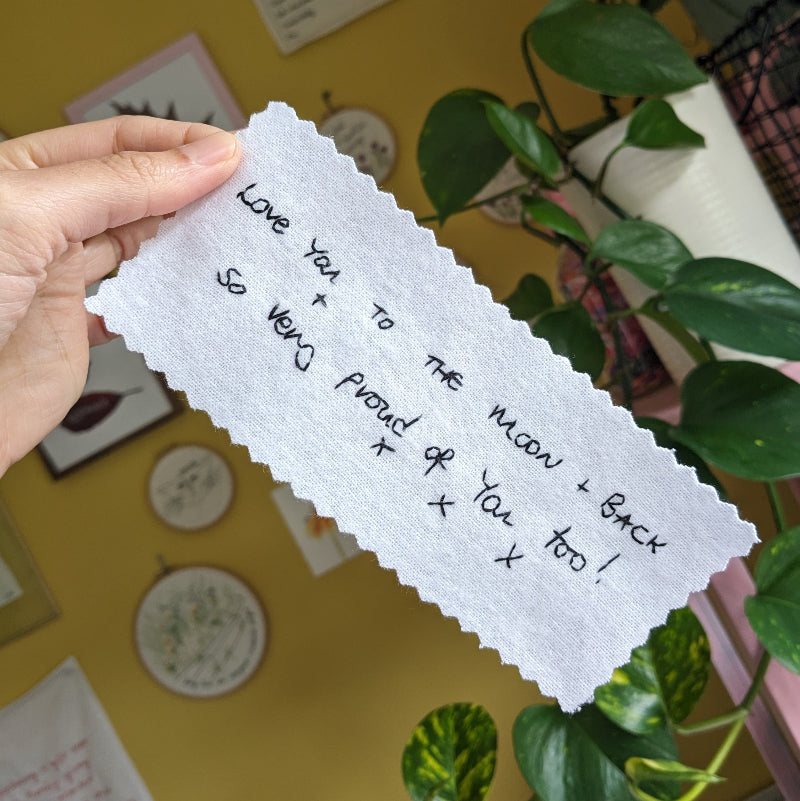 Love you to THE moon + BACK
+
So very proud of you too!
x x x